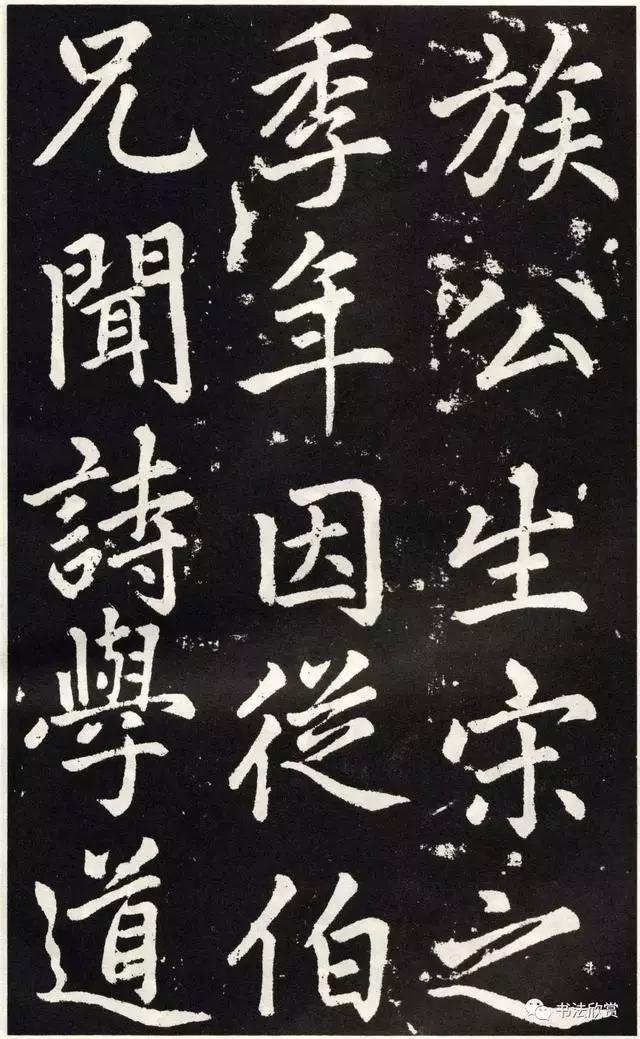 族公生宋之
季年因從伯
兄聞詩學道
书法欣赏